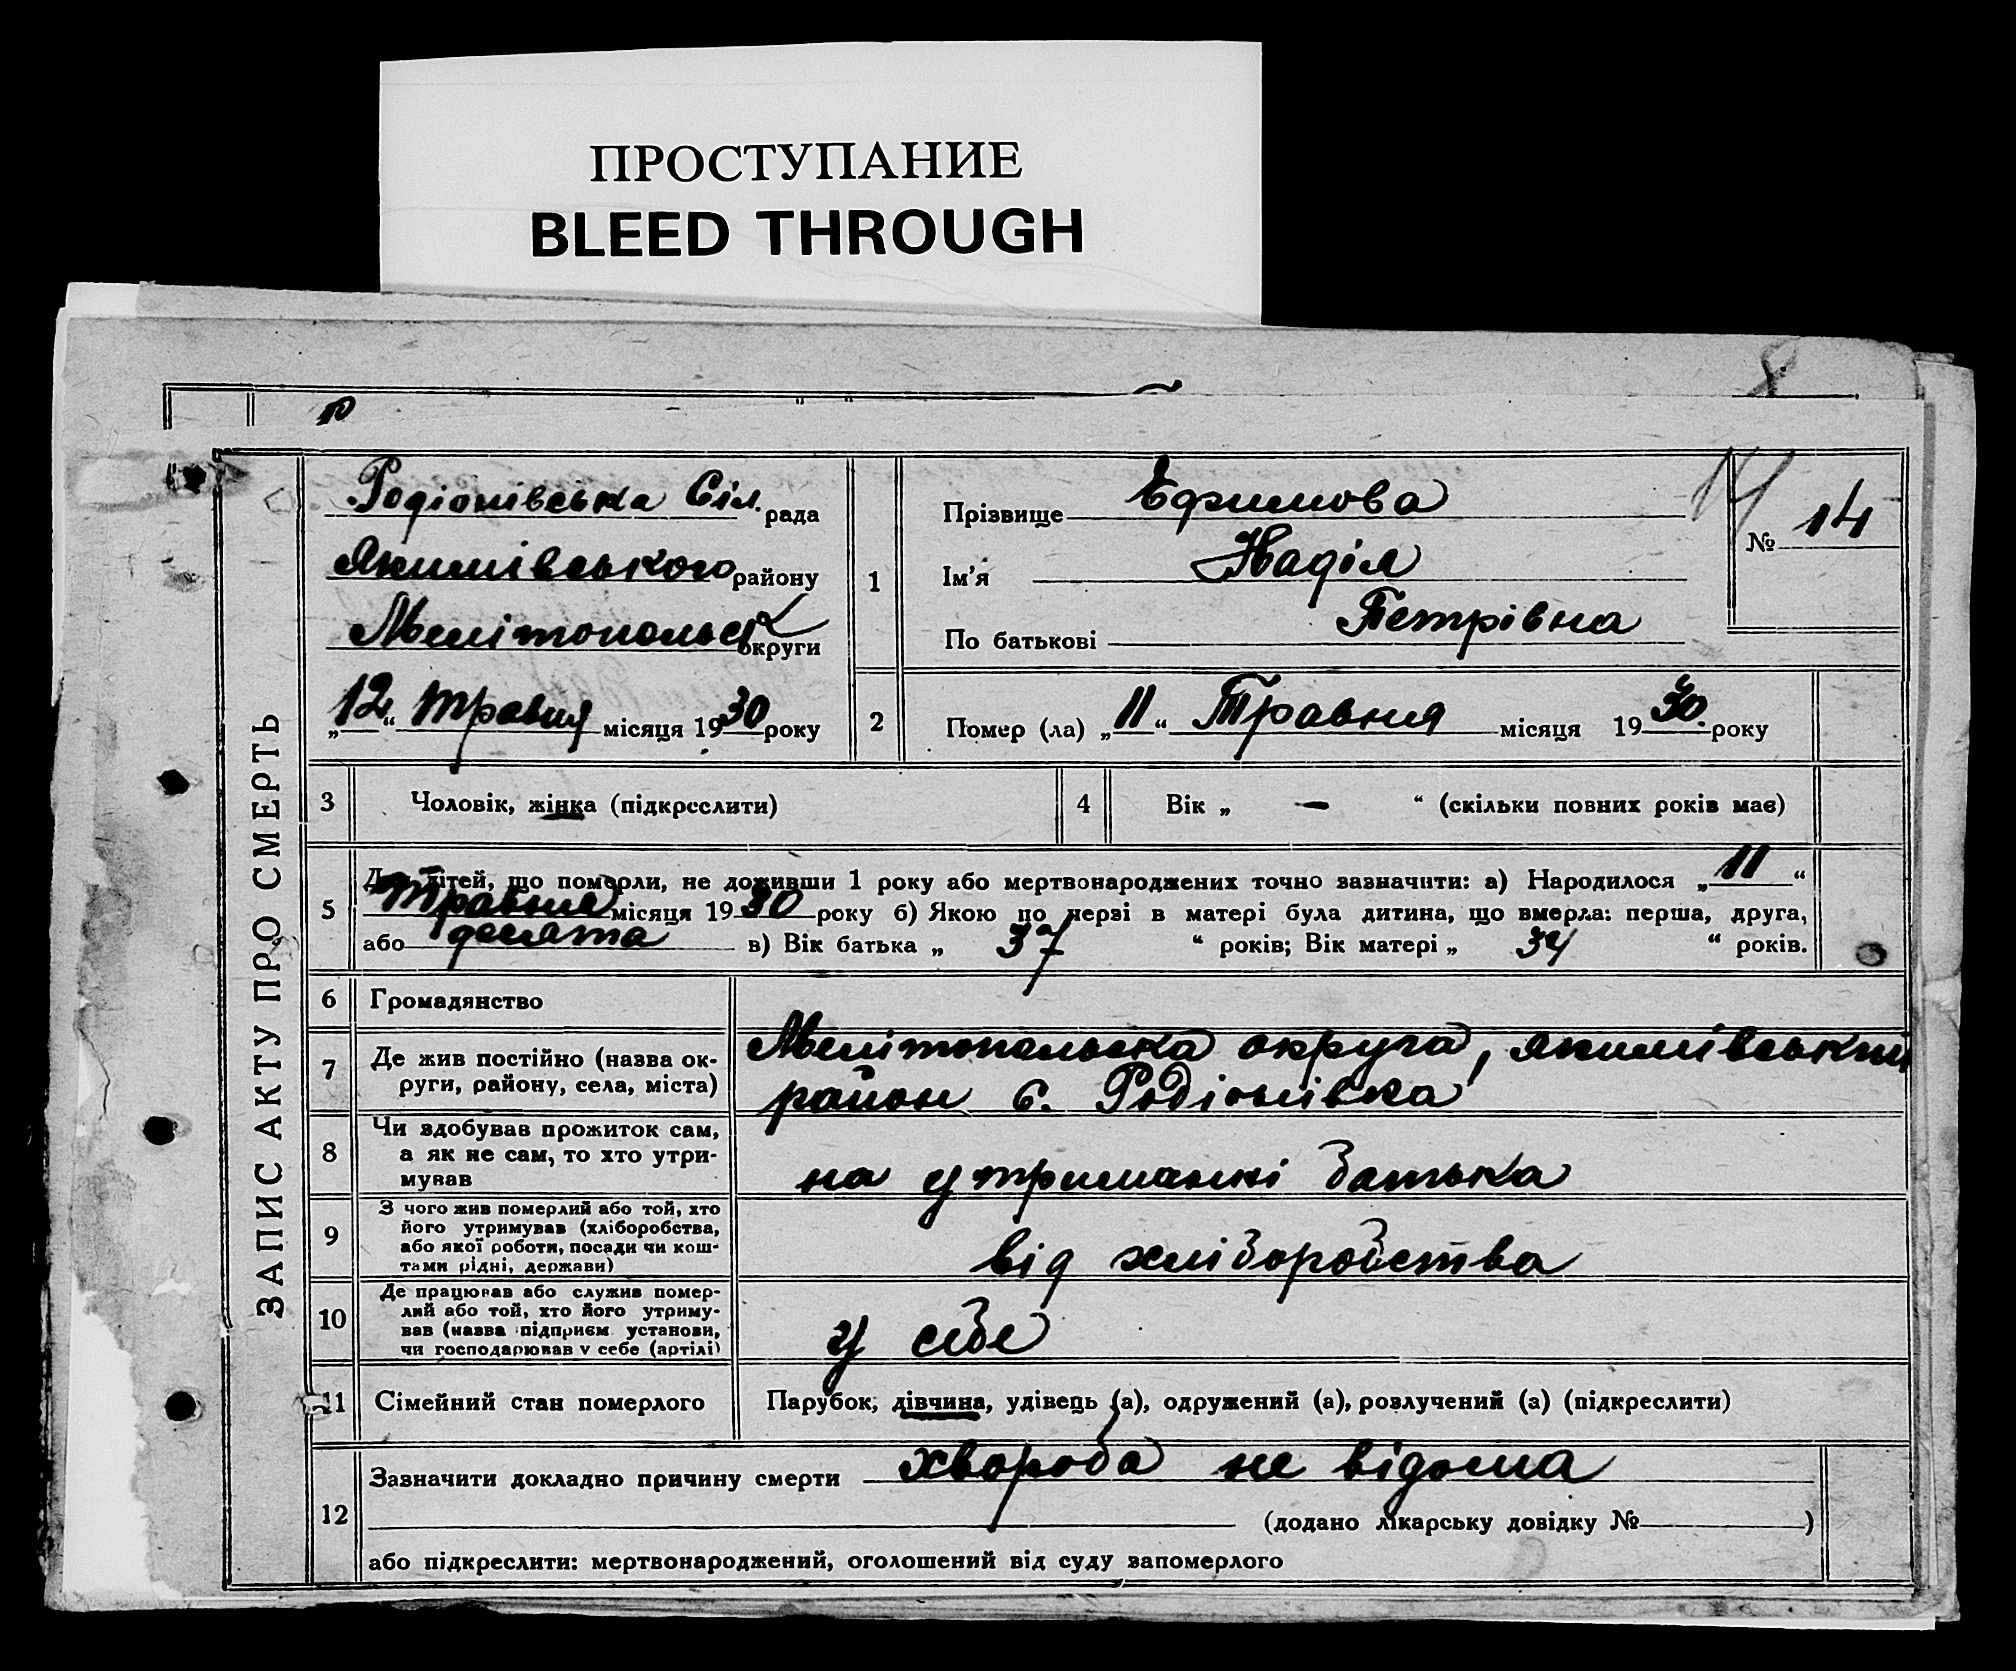 ПРОСТУПАНИЕ
BLEED THROUGH
ЗАПИС АКТУ ПРО СМЕРТЬ
Родіонівська Сіл. рада
Якимівського району
Мелітопольськ округи
„12“ травня місяця 1930 року
1
Прізвище Ефимова
Ім’я Надія
По батькові Петрівна
№ 14
2
Помер (ла) „11“ Травня місяця 1930. року
3
Чоловік, жінка (підкреслити)
4
Вік „ — “ (скільки повних років має)
5
Для дітей, що померли, не доживши 1 року або мертвонароджених точно зазначити: а) Народилося „11“
Травня місяця 1930 року б) Якою по черзі в матері була дитина, що вмерла: перша, друга,
або десята в) Вік батька „ 37 “ років; Вік матері „ 34 “ років.
6
Громадянство
7
Де жив постійно (назва ок-
руги, району, села, міста)
Мелітопольська округа, якимівський
район с. Родіонівка
8
Чи здобував прожиток сам,
а як не сам, то хто утри-
мував
на утриманні батька
9
З чого жив померлий або той, хто
його утримував (хліборобства,
або якої роботи, посади чи кош-
тами рідні, держави)
від хліборобства
10
Де працював або служив помер-
лий або той, хто його утриму-
вав (назва підприєм. установи,
чи господарював у себе (артілі)
у себе
11
Сімейний стан померлого
Парубок, дівчина, удівець (а), одружений (а), розлучений (а) (підкреслити)
12
Зазначити докладно причину смерти хвороба не відома
(додано лікарську довідку № )
або підкреслити: мертвонароджений, оголошений від суду запомерлого